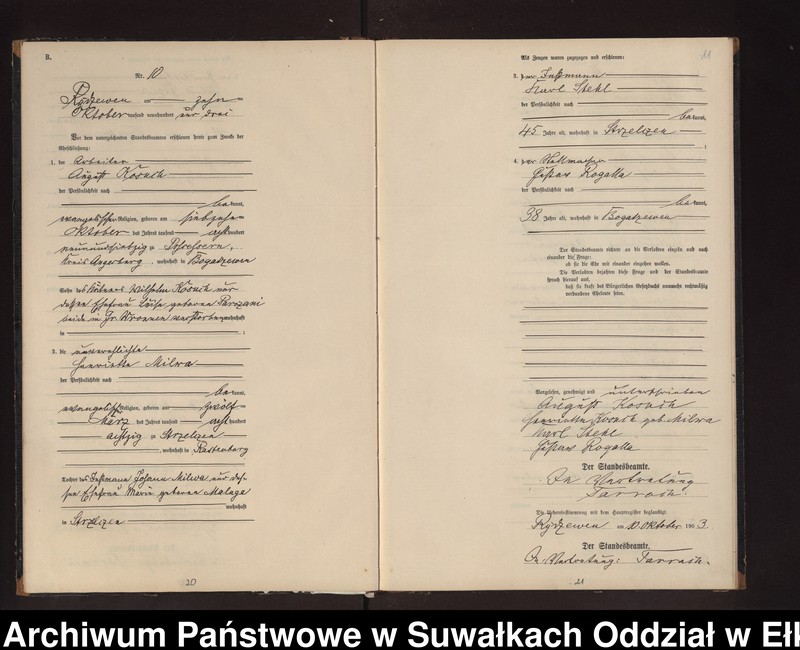 B.
Nr. 10
Rydzewen zehn
Oktober tausend neunhundert und drei
Vor dem unterzeichneten Standesbeamten erschienen heute zum Zwecke der
Eheschließung:
1. der Arbeiter
August Kosuch
der Persönlichkeit nach
bekannt,
evangelischer Religion, geboren am siebzehn
Oktober des Jahres tausend achthundert
neunundsiebzig zu
Kreis Angerburg, wohnhaft in Bogatzewen
Sohn des Wilhelm Kosuch und
dessen Ehefrau Luise geborenen
beide in Gr. verstorben wohnhaft
in ;
2. die unverehelichte
Henriette Milwa
der Persönlichkeit nach
bekannt,
evangelischer Religion, geboren am zwölf
März des Jahres tausend achthundert
achtzig zu Strzelzen
, wohnhaft in Rastenburg
Tochter des Instmanns Johann Milwa und des-
sen Ehefrau Marie geborenen Malaga
wohnhaft
in Strzelzen
20
Als Zeugen waren zugezogen und erschienen:
11
3. der Instmann
Karl Stehl
der Persönlichkeit nach
bekannt,
45 Jahre alt, wohnhaft in Strzelzen
;
4. der Stellmacher
Gustav Rogalla
der Persönlichkeit nach
bekannt,
38 Jahre alt, wohnhaft in Bogatzewen
Der Standesbeamte richtete an die Verlobten einzeln und nach
einander die Frage:
ob sie die Ehe mit einander eingehen wollen.
Die Verlobten bejahten diese Frage und der Standesbeamte
sprach hierauf aus,
daß sie kraft des Bürgerlichen Gesetzbuchs nunmehr rechtmäßig
verbundene Eheleute seien.
Vorgelesen, genehmigt und unterschrieben
August Kosuch
Henriette Kosuch geb. Milwa
Karl Stehl
Gustav Rogalla
Der Standesbeamte.
In Vertretung
Tarrach.
Die Uebereinstimmung mit dem Hauptregister beglaubigt.
Rydzewen am 10 Oktober 1903.
Der Standesbeamte.
In Vertretung: Tarrach.
21
Archiwum Państwowe w Suwałkach Oddział w Ełk